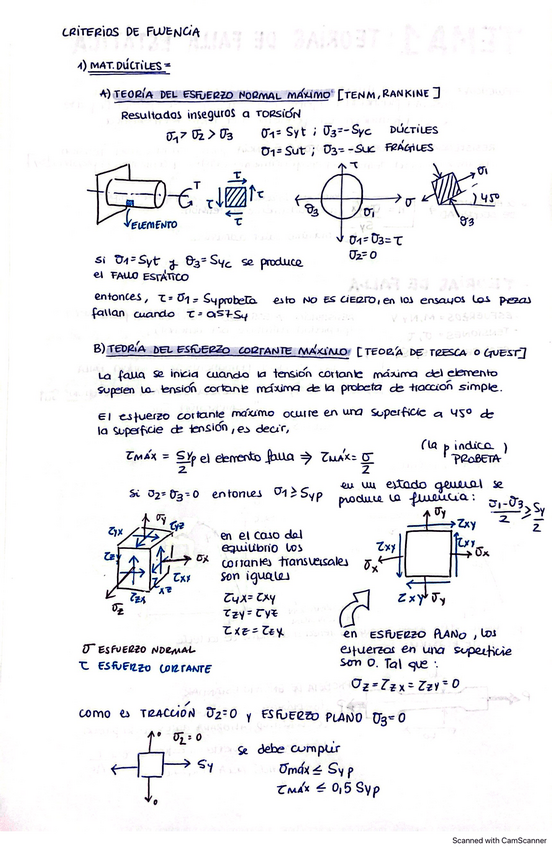 CRITERIOS DE FLUENCIA
1) MAT. DÚCTILES =
A) TEORÍA DEL ESFUERZO NORMAL MÁXIMO [TENM, RANKINE]
Resultados inseguros a TORSIÓN
σ1 > σ2 > σ3 σ1 = Syt ; σ3 = -Syc DÚCTILES
σ1 = Sut ; σ3 = -Suc FRÁGILES
T
ELEMENTO
τ
τ τ
τ
τ
σ3 σ1 σ
σ1 = σ3 = τ
σ2 = 0
σ1
45º
σ3
si σ1 = Syt y σ3 = Syc se produce
el FALLO ESTÁTICO
entonces, τ = σ1 = Syprobeta esto NO ES CIERTO, en los ensayos las piezas
fallan cuando τ = 0,57Sy
B) TEORÍA DEL ESFUERZO CORTANTE MÁXIMO [TEORÍA DE TRESCA O GUEST]
La falla se inicia cuando la tensión cortante máxima del elemento
superen la tensión cortante máxima de la probeta de tracción simple.
El esfuerzo cortante máximo ocurre en una superficie a 45º de
la superficie de tensión, es decir,
τmáx = Syp/2 el elemento falla ⇒ τmáx = σ/2
(la p indica PROBETA)
si σ2 = σ3 = 0 entonces σ1 ≥ Syp
en un estado general se
produce la fluencia: σ1-σ3/2 ≥ Sy/2
σy
τyx τyz
σx
σz
τzx
en el caso del
equilibrio los
cortantes transversales
son iguales
τyx = τxy
τzy = τyz
τxz = τzx
σy
τxy
τxy τxy
σx σx
τxy σy
σ ESFUERZO NORMAL
τ ESFUERZO CORTANTE
en ESFUERZO PLANO, los
esfuerzos en una superficie
son 0. Tal que :
σz = τzx = τzy = 0
como es TRACCIÓN σ2=0 y ESFUERZO PLANO σ3=0
0 σ2 = 0
Sy
0
se debe cumplir
σmáx ≤ Syp
τmáx ≤ 0,5 Syp
Scanned with CamScanner